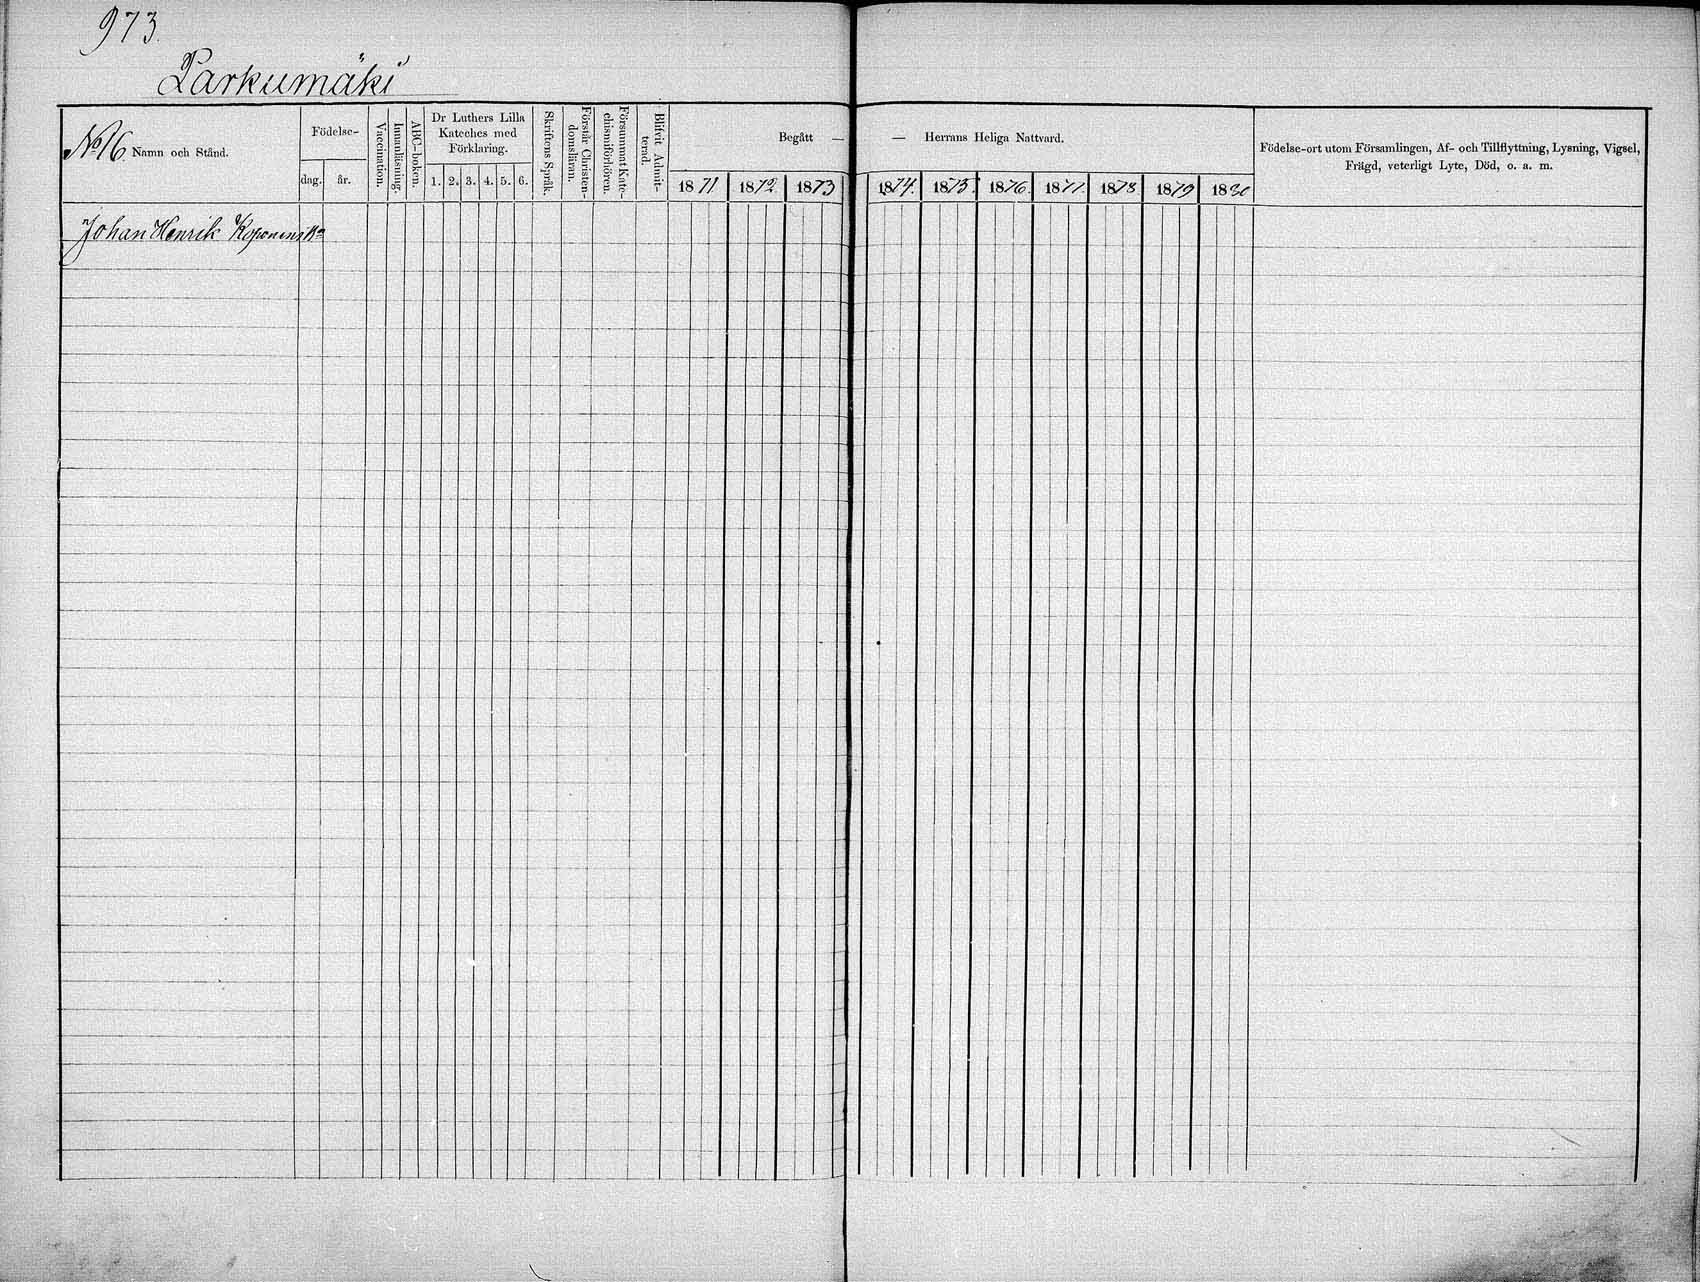 973.
Parkumäki
No 16 Namn och Stånd.
Födelse-
dag. år.
Vaccination.
Innanläsning.
ABC-boken.
Dr Luthers Lilla
Kateches med
Förklaring.
1. 2. 3. 4. 5. 6.
Skriftens Språk.
Förstår Christen-
domsläran.
Försummat Kate-
chismiförhören.
Blifvit Admit-
terad.
Begått —
— Herrans Heliga Nattvard.
1871 1872 1873 1874. 1875. 1876. 1877. 1878. 1879 1880
Födelse-ort utom Församlingen, Af- och Tillflyttning, Lysning, Vigsel,
Frägd, veterligt Lyte, Död, o. a. m.
Johan Henrik Koponens